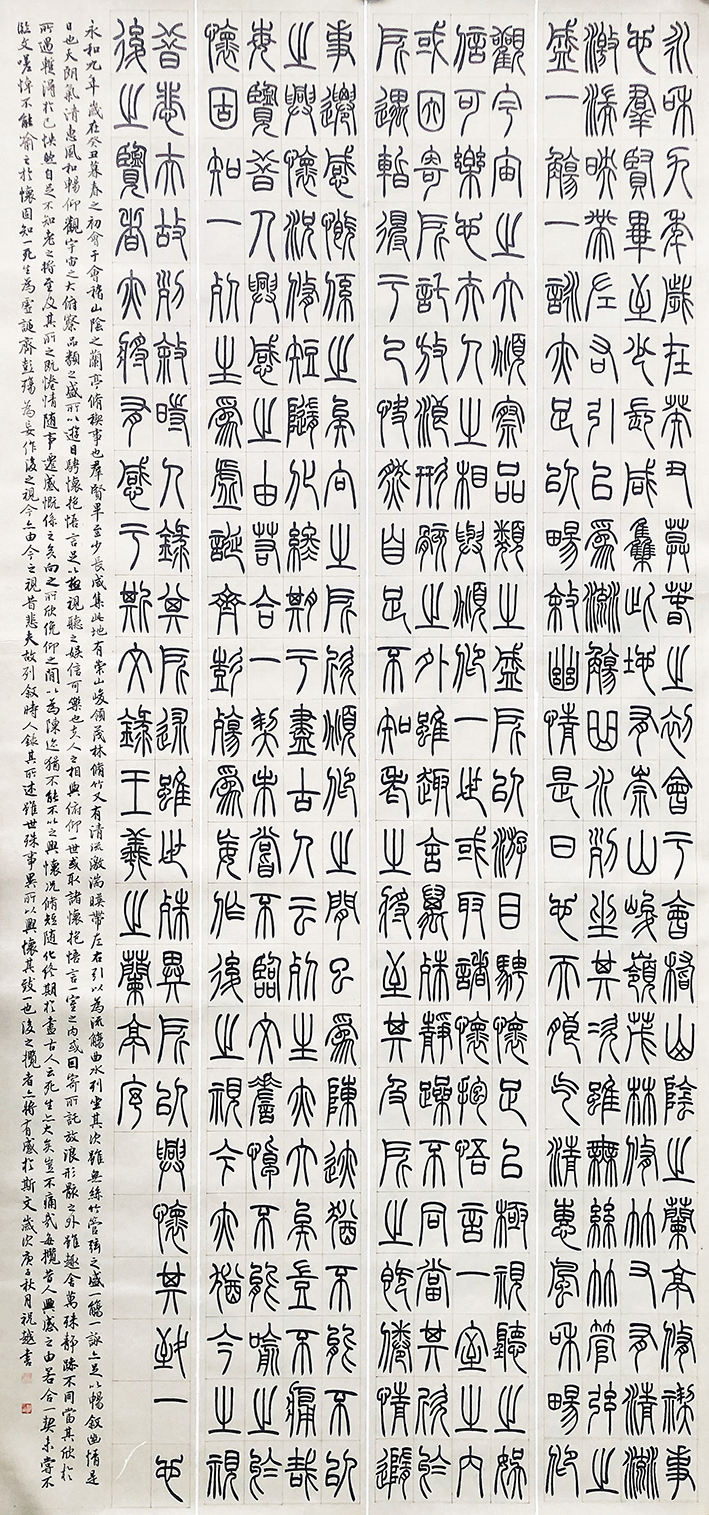 永和九年歲在癸丑莫春之初會于會稽山陰之蘭亭修禊事
也羣賢畢至少長咸集此地有崇山峻嶺茂林修竹又有清流
激湍映帶左右引以為流觴曲水列坐其次雖無絲竹管弦之
盛一觴一詠亦足以暢敘幽情是日也天朗气清惠風和暢仰
觀宇宙之大俯察品類之盛所以游目騁懷足以極視聽之娛
信可樂也夫人之相與俯仰一世或取諸懷抱悟言一室之內
或因寄所託放浪形骸之外雖趣舍萬殊靜躁不同當其欣於
所遇暫得于己快然自足不知老之將至及其所之既倦情隨
事遷感慨係之矣向之所欣俯仰之間已為陳迹猶不能不以
之興懷況修短隨化終期于盡古人云死生亦大矣豈不痛哉
每覽昔人興感之由若合一契未嘗不臨文嗟悼不能喻之於
懷固知一死生為虛誕齊彭殤為妄作後之視今亦猶今之視
昔悲夫故列敘時人錄其所述雖世殊異所以興懷其致一也
後之覽者亦將有感于斯文錄王羲之蘭亭序
永和九年歲在癸丑暮春之初會于會稽山陰之蘭亭脩禊事也羣賢畢至少長咸集此地有崇山峻領茂林脩竹又有清流激湍暎帶左右引以為流觴曲水列坐其次雖無絲竹管弦之盛一觴一詠亦足以暢叙幽情是
日也天朗氣清惠風和暢仰觀宇宙之大俯察品類之盛所以遊目騁懷抱悟言足以極視聽之娛信可樂也夫人之相與俯仰一世或取諸懷抱悟言一室之內或因寄所託放浪形骸之外雖趣舍萬殊靜躁不同當其欣於
所遇輒得於己快然自足不知老之將至及其所之既惓情隨事遷感慨係之矣向之所欣俛仰之間以為陳迹猶不能不以之興懷況脩短隨化終期於盡古人云死生亦大矣豈不痛哉每攬昔人興感之由若合一契未嘗不
臨文嗟悼不能喻之於懷固知一死生為虛誕齊彭殤為妄作後之視今亦由今之視昔悲夫故列叙時人錄其所述雖世殊事異所以興懷其致一也後之攬者亦將有感於斯文歲次庚子秋月祝越書